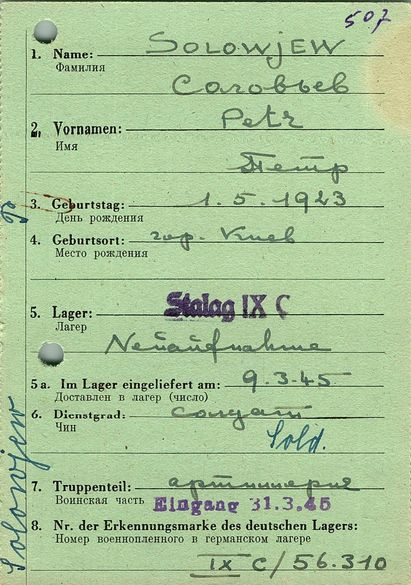 507
1. Name: SOLOWJEW
Фамилия Соловьев
2. Vornamen: Petr
Имя
Петр
3. Geburtstag: 1.5.1923
День рождения
4. Geburtsort: гор. Киев
Место рождения
5. Lager: Stalag IX C
Лагер
Neuaufnahme
5a. Im Lager eingeliefert am: 9.3.45
Доставлен в лагер (число)
6. Dienstgrad: солдат
Чин
Sold.
7. Truppenteil: артиллерия
Воинская часть Eingang 31.3.45
8. Nr. der Erkennungsmarke des deutschen Lagers:
Номер военнопленного в германском лагере
IX C/56.310
Solowjew